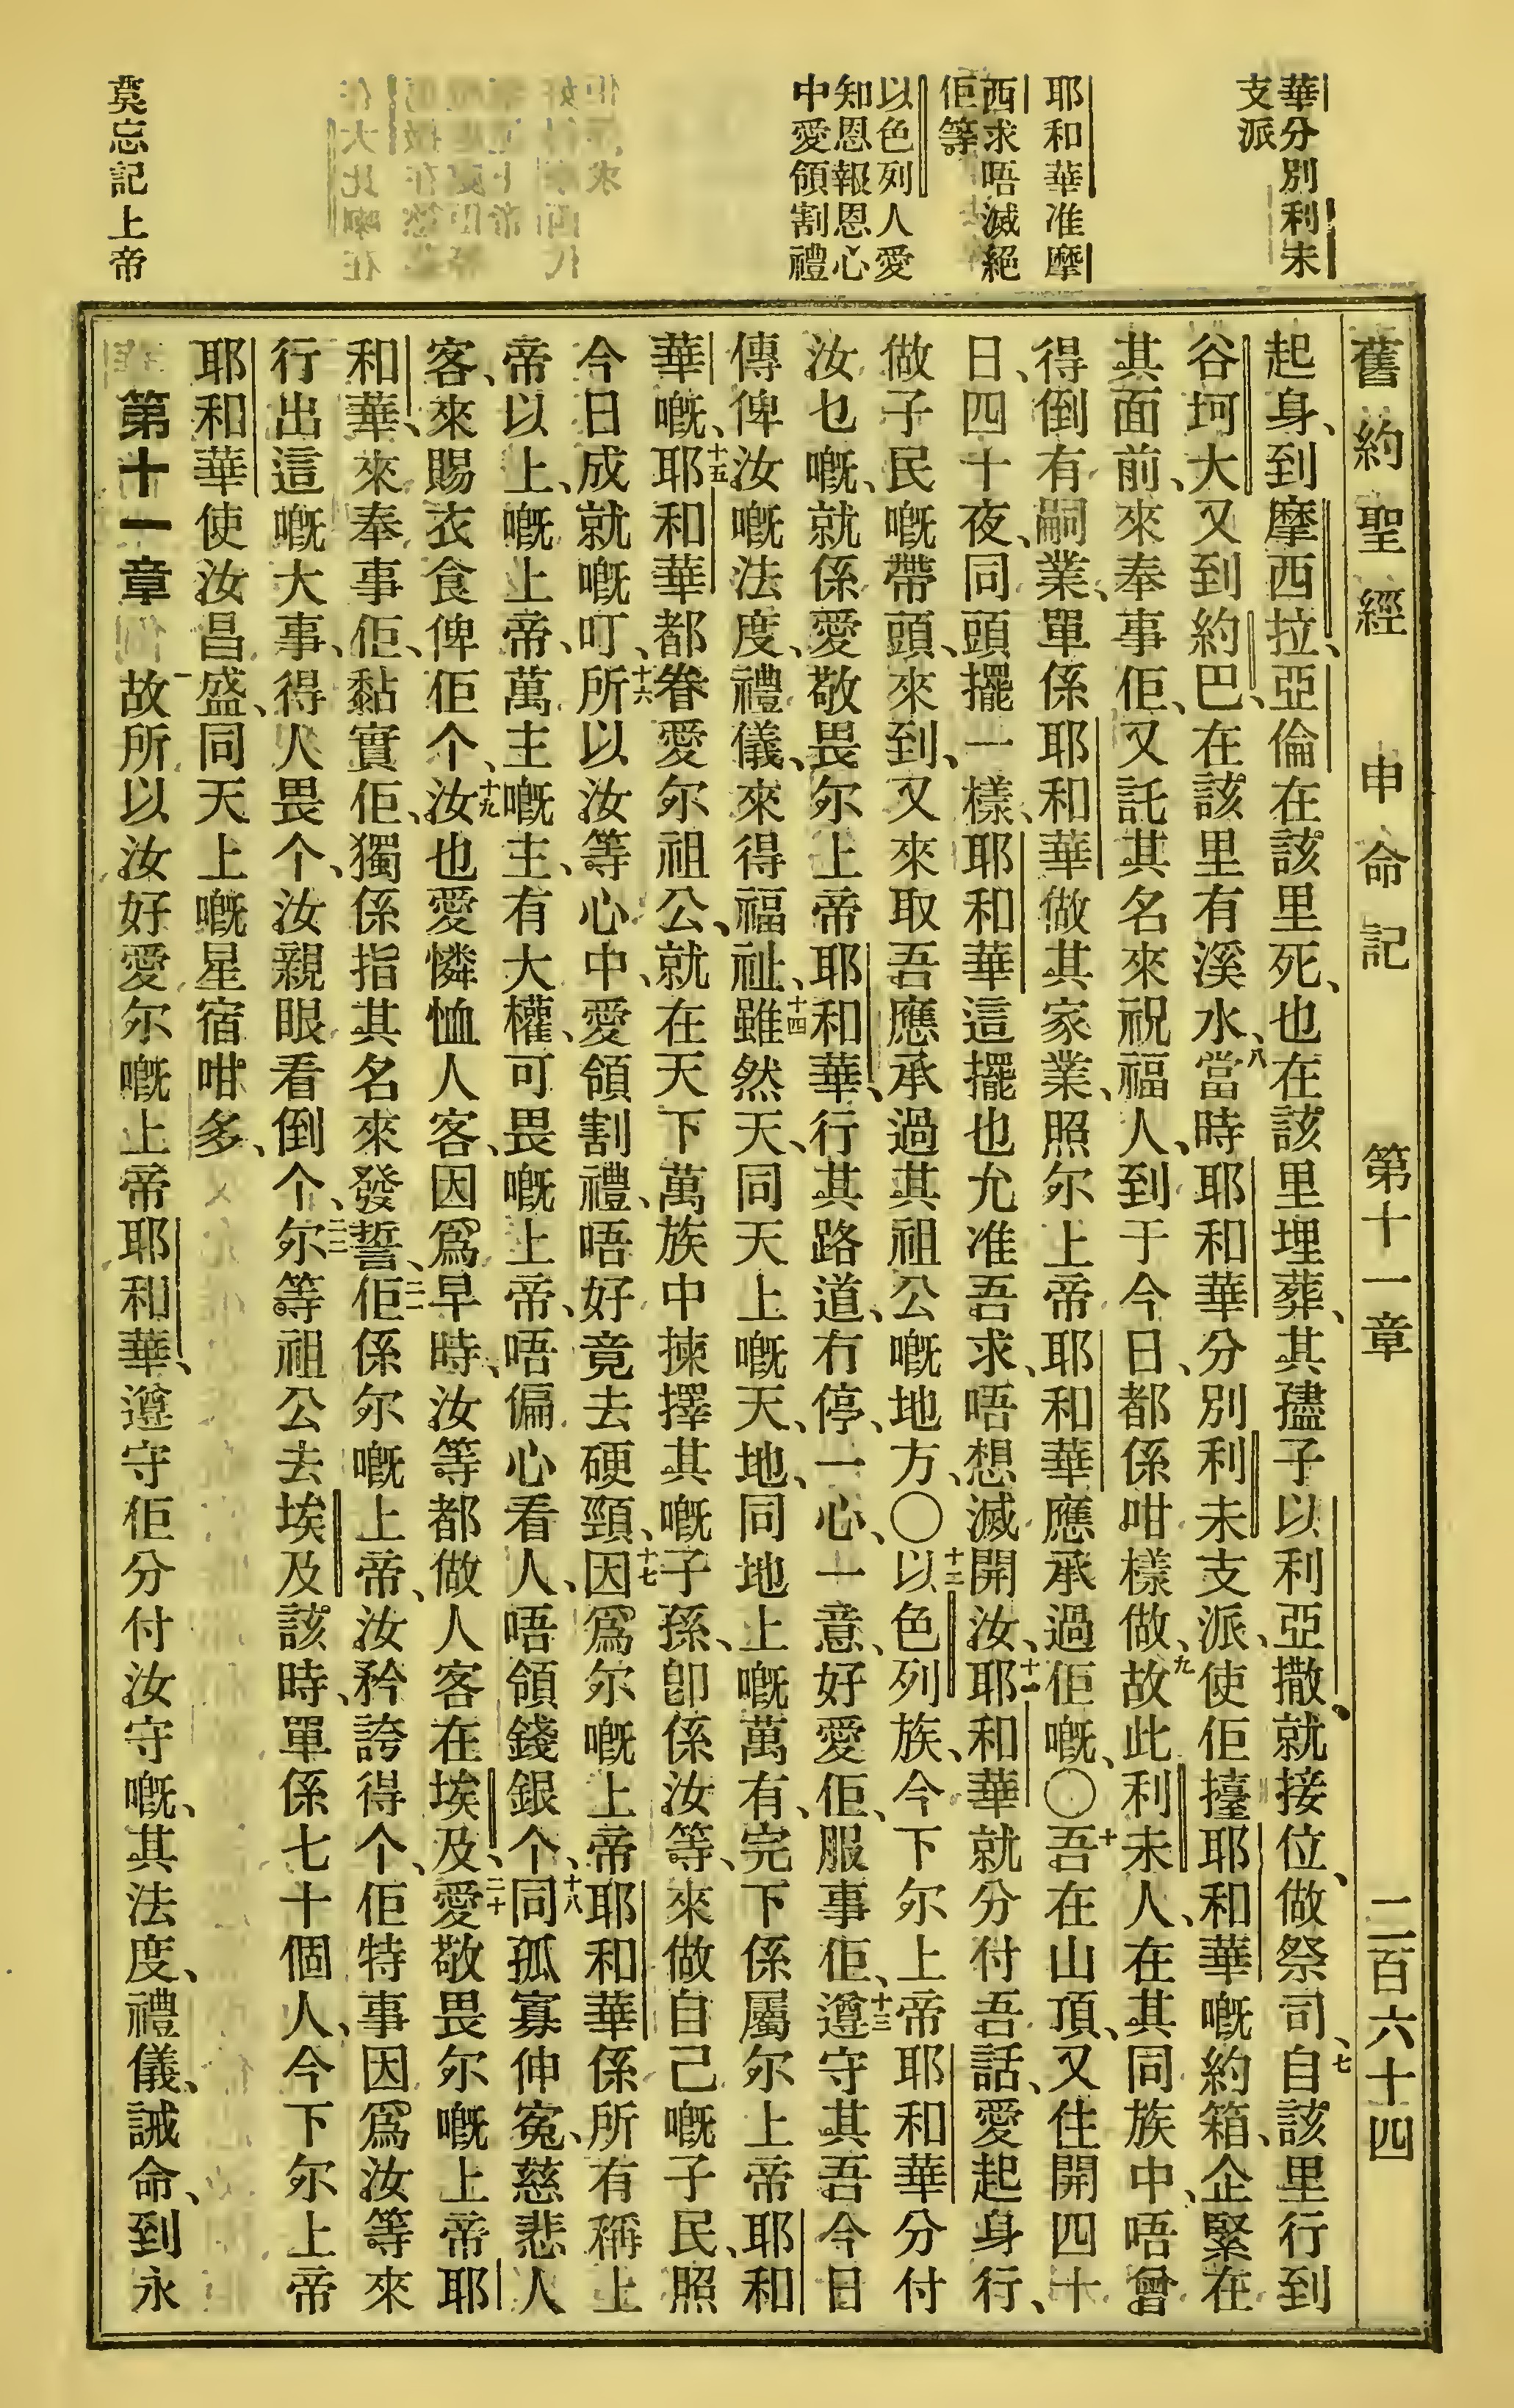 華分別利未
支派
耶和華准摩
西求唔滅絕
佢等
以色列人愛
知恩報恩心
中愛領割禮
莫忘記上帝
舊約聖經 申命記 第十一章 二百六十四
起身、到摩西拉、亞倫在該里死、也在該里埋葬、其孻子以利亞撒、就接位、做祭司、七自該里行到
谷坷大、又到約巴、在該里有溪水、八當時耶和華分別利未支派、使佢擡耶和華嘅約箱、企緊在
其面前、來奉事佢、又託其名來祝福人、到于今日、都係咁樣做、九故此利未人、在其同族中、唔曾
得倒有嗣業、單係耶和華做其家業、照尔上帝耶和華應承過佢嘅、〇十吾在山頂、又住開四十
日、四十夜、同頭擺一樣、耶和華這擺也允准吾求、唔想滅開汝、十一耶和華就分付吾話、愛起身行、
做子民嘅帶頭、來到、又來取吾應承過其祖公嘅地方、〇十二以色列族、今下尔上帝耶和華分付
汝乜嘅、就係愛敬畏尔上帝耶和華、行其路道、冇停、一心、一意、好愛佢、服事佢、十三遵守其吾今日
傳俾汝嘅法度、禮儀、來得福祉、十四雖然天、同天上嘅天、地、同地上嘅萬有、完下係屬尔上帝耶和
華嘅、十五耶和華都眷愛尔祖公、就在天下萬族中揀擇其嘅子孫、卽係汝等、來做自己嘅子民、照
今日成就嘅叮、十六所以汝等心中、愛領割禮、唔好竟去硬頸、十七因爲尔嘅上帝耶和華係所有稱上
帝以上、嘅上帝、萬主嘅主、有大權、可畏嘅上帝、唔偏心看人、唔領錢銀个、十八同孤寡伸寃、慈悲人
客、來賜衣食俾佢个、十九汝也愛憐恤人客、因爲早時、汝等都做人客在埃及、二十愛敬畏尔嘅上帝耶
和華、來奉事佢、黏實佢、獨係指其名來發誓、二一佢係尔嘅上帝、汝矜誇得个、佢特事因爲汝等來
行出這嘅大事、得人畏个、汝親眼看倒个、二二尔等祖公去埃及該時、單係七十個人、今下尔上帝
耶和華使汝昌盛、同天上嘅星宿咁多、
第十一章 一故所以汝好愛尔嘅上帝耶和華、遵守佢分付汝守嘅、其法度、禮儀、誡命、到永